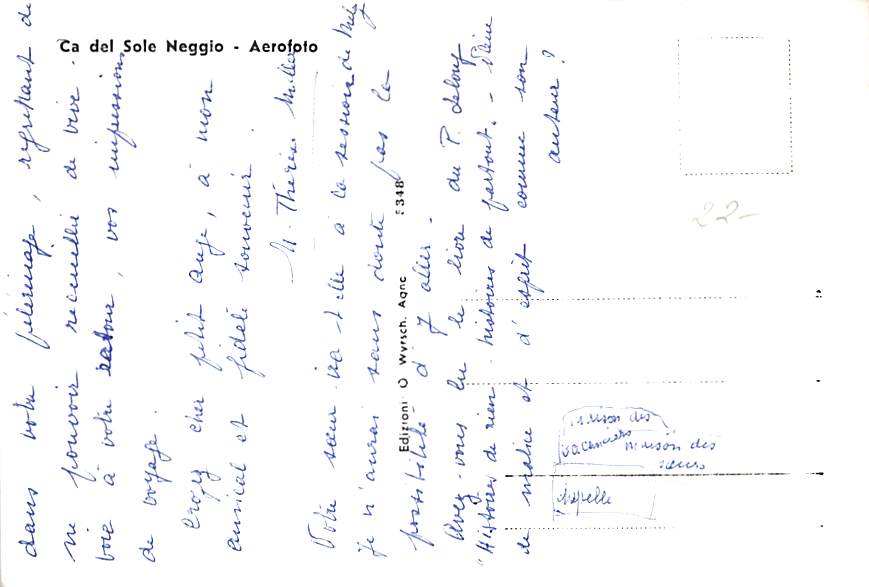 Ca del Sole Neggio - Aerofoto
dans votre pélerinage, regrettant de
ne pouvoir recueillir de vive
voix à votre retour, vos impressions
de voyage.
Croyez cher petit ange, à mon
amical et fidèle souvenir.
M. Thérèse
Votre sœur va-t-elle à la session de
je n'aurai sans doute pas la
possibilité d'y aller.
Avez-vous lu le livre du P.
"Histoires de rien, histoires de partout. - Pleine
de malice et d'esprit comme son
auteur?
Edizioni O Wyrsch. Agno
5348
22-
maison des
vacanciers
maison des
sœurs
chapelle